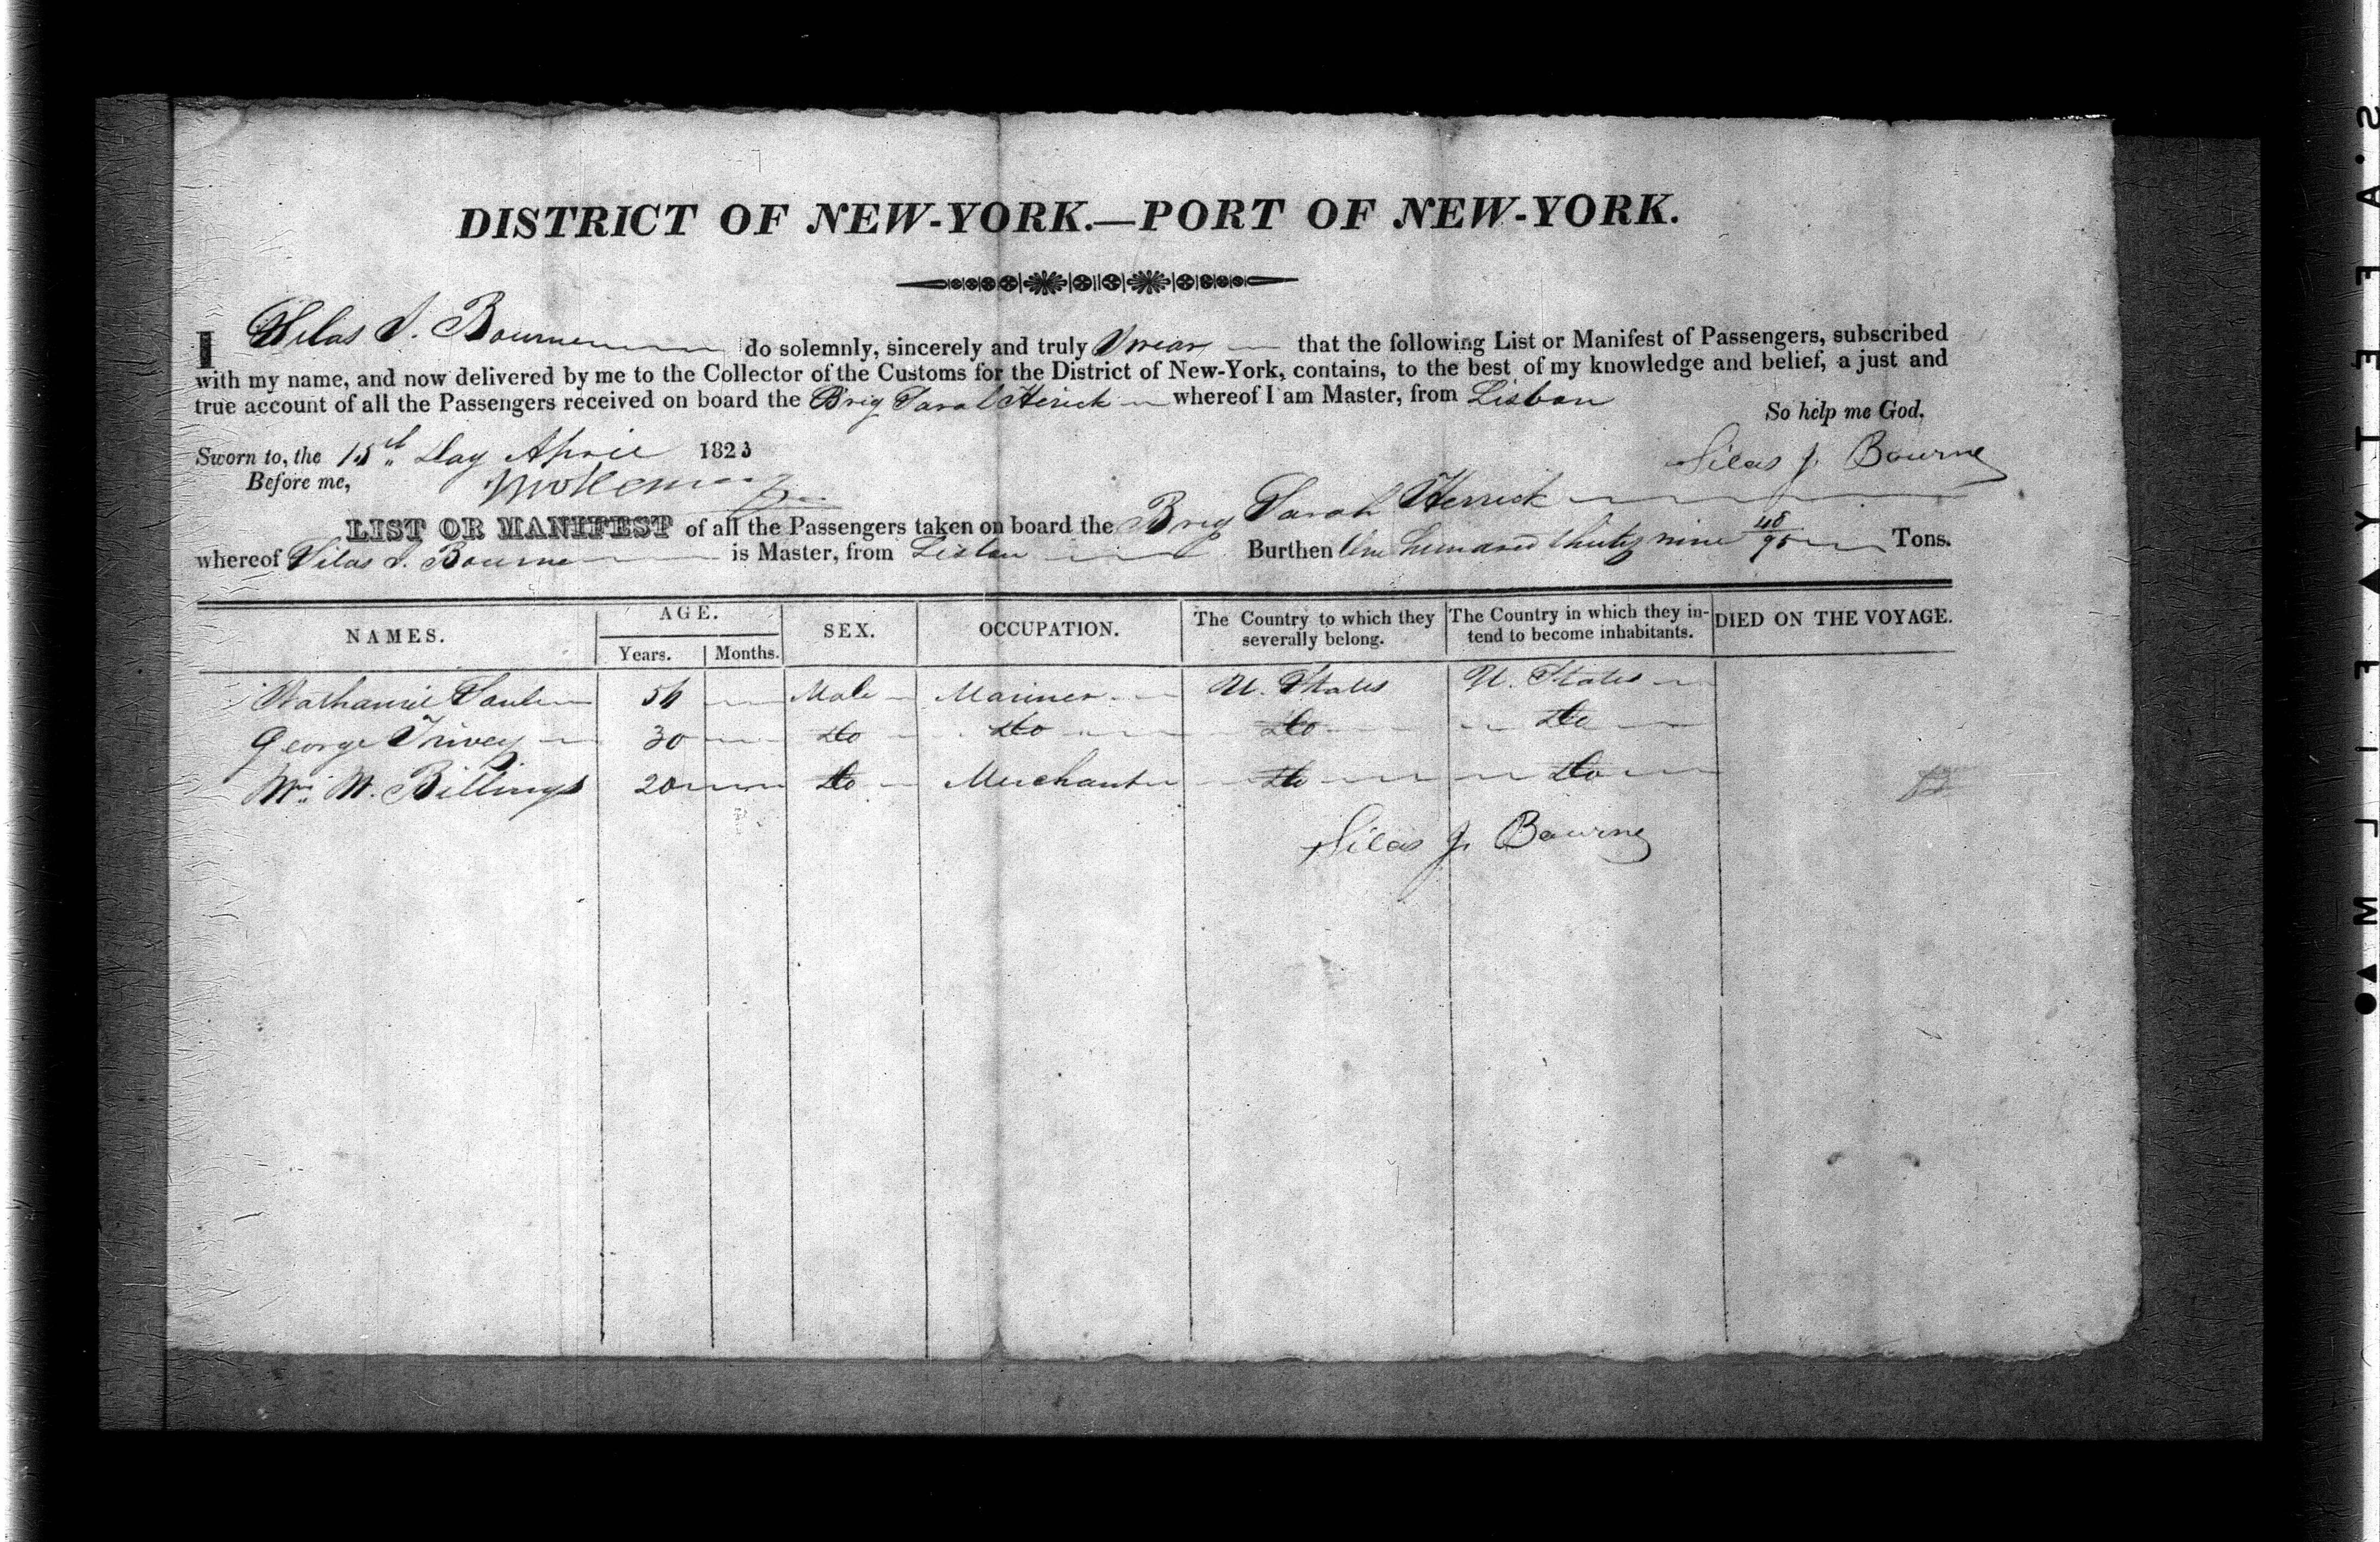 DISTRICT OF NEW-YORK.—PORT OF NEW-YORK.
I Silas J. Bourne do solemnly, sincerely and truly Swear that the following List or Manifest of Passengers, subscribed
with my name, and now delivered by me to the Collector of the Customs for the District of New-York, contains, to the best of my knowledge and belief, a just and
true account of all the Passengers received on board the Brig Sarah Herick whereof I am Master, from Lisbon
So help me God.
Sworn to, the 15th Day April 1823
Silas J. Bourne
Before me,
LIST OR MANIFEST of all the Passengers taken on board the Brig Sarah Herrick
whereof Silas J. Bourne is Master, from Lisbon Burthen One hundred thirty nine 48/95 Tons.
NAMES. AGE. SEX. OCCUPATION. The Country to which they severally belong. The Country in which they intend to become inhabitants. DIED ON THE VOYAGE.
Years. Months.
Nathaniel Male Mariner U. States U. States
George 30 Do Do Do Do
Wm. W. Billings 20 Do Merchant Do Do
Silas J. Bourne